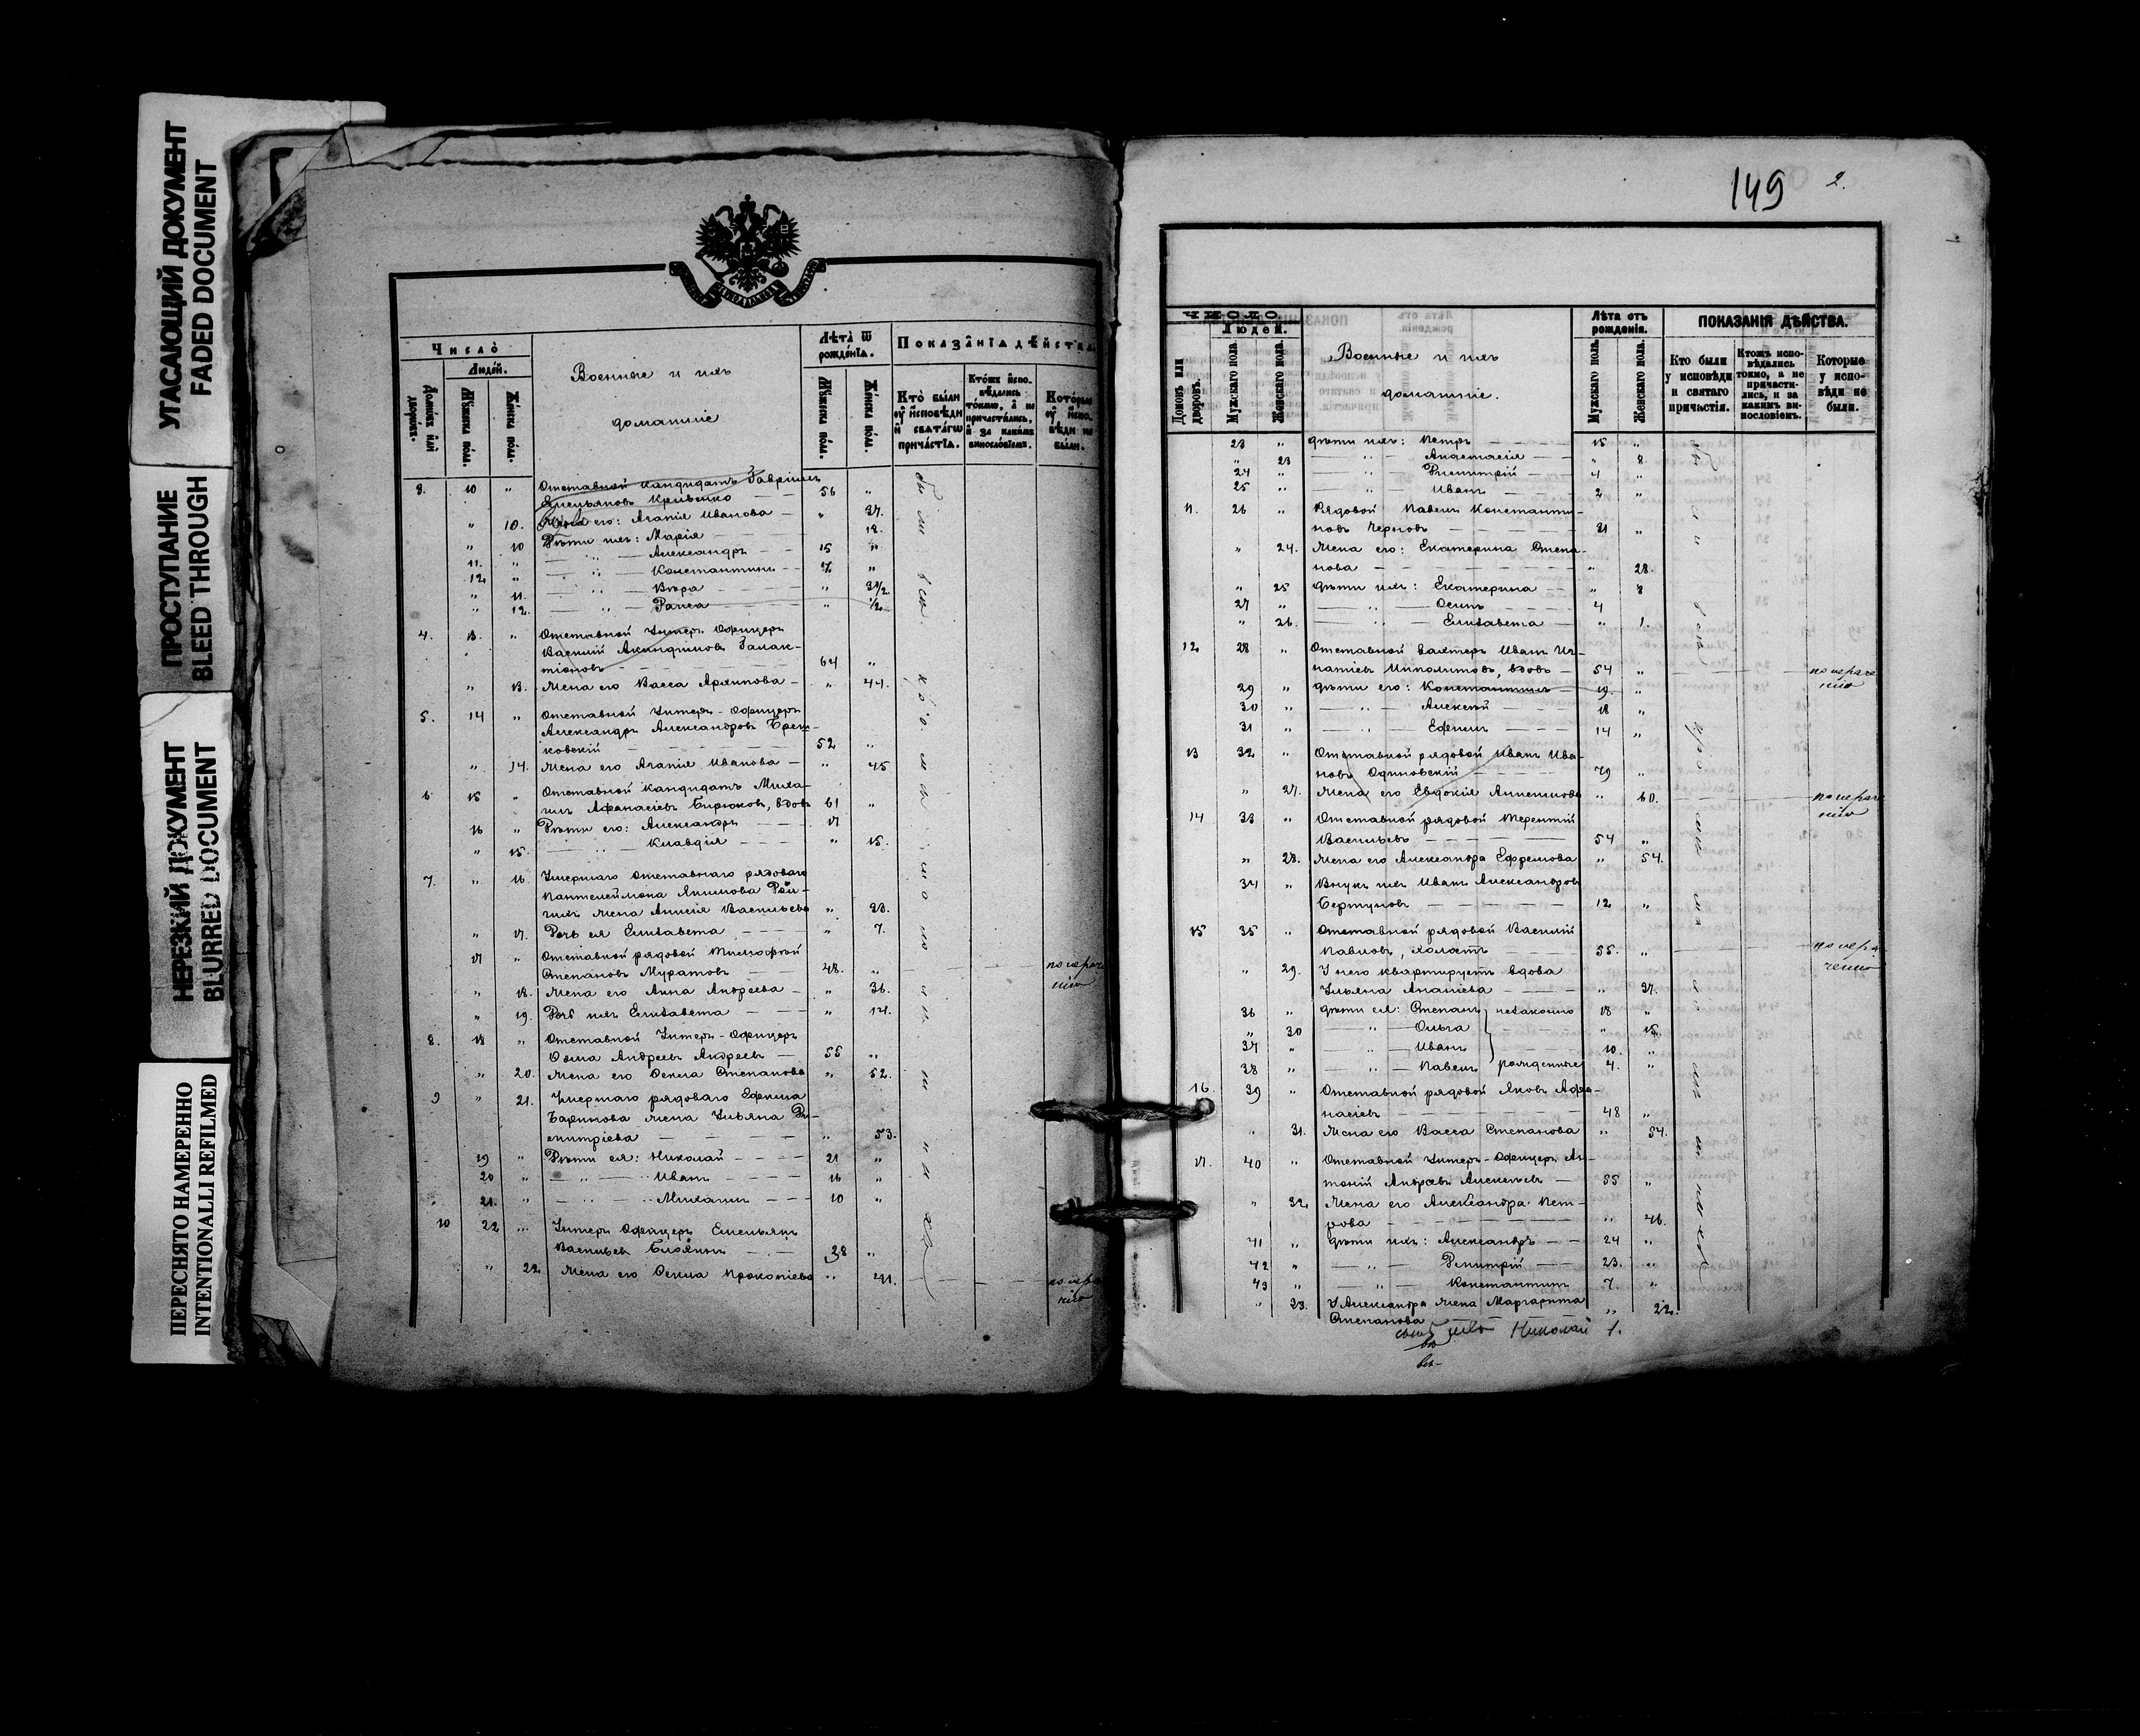 УГАСАЮЩИЙ ДОКУМЕНТ
FADED DOCUMENT
ПРОСТУПАНИЕ
BLEED THROUGH
НЕРЕЗКИЙ ДОКУМЕНТ
BLURRED DOCUMENT
ПЕРЕСНЯТО НАМЕРЕННО
INTENTIONALLI REFILMED
Число
Людей.
Домовъ или дворовъ.
Мужеска пола.
Женска пола.
Военные и ихъ
домашніе
Лѣта ѿ
рожденія.
Мужеска пола.
Женска пола.
Показанія дѣйства.
Кто были
у исповѣди
и святагѡ
причастія.
Ктожъ испо-
вѣдались
токмо, а не
причастились,
и за какимъ
винословіемъ.
Которые
у испо-
вѣди не
были.
3. 10 " Отставной Кандидатъ Гавріилъ
Емельяновъ Кривенко — 56 "
" 10. Жена его: Агапія Иванова — " 37.
" 10 Дѣти ихъ: Марія — 18.
11. " — " — Александръ — 15 "
12. " — " — Константинъ — 7. "
" 11. — " — Вѣра — " 3 1/2
" 12. — " — Раиса — " 1/2
4. 13. " Отставной Унтеръ Офицеръ
Василій Акиндиновъ Галак-
тіоновъ — 64 "
" 13. Жена его Васса Архипова — " 44.
5. 14 " Отставной Унтеръ-Офицеръ
Александръ Александровъ Бреш-
ковскій — 52 "
" 14. Жена его Агапія Иванова — " 45
6 15 " Отставной Кандидатъ Миха-
илъ Афанасіевъ Бирюковъ, вдовъ 61 "
16 " Дѣти его: Александръ — 17
" 15. — " — Клавдія — " 15.
7. " 16 Умершаго отставнаго рядоваго
Пантелеймона Якимова
жена Анисія Васильева " 33.
" 17. Дочь ея Елисавета — " 7.
17 " Отставной рядовой Тимофей
Степановъ Муратовъ — 48. "
" 18. Жена его Анна Андреева — " 36.
" 19. Дочь ихъ Елисавета — " 14.
8. 18 " Отставной Унтеръ-Офицеръ
Ѳома Андреевъ Андреевъ — 55 "
" 20. Жена его Ѳекла Степанова " 52.
9 " 21. Умершаго рядоваго Ефима
Баринова жена Ульяна Ди-
митріева — " 53.
19 " Дѣти ея: Николай — 21 "
20 " — " — Иванъ — 16 "
21. " — " — Михаилъ — 10 "
10 22 " Унтеръ Офицеръ Емельянъ
Васильевъ — 38 "
" 22. Жена его Ѳекла Прокопіева " 41.
149 2.
ЧИСЛО.
Людей.
Домовъ или
дворовъ.
Мужскаго пола.
Женскаго пола.
Военные и ихъ
домашніе.
Лѣта отъ
рожденія.
Мужскаго пола.
Женскаго пола.
ПОКАЗАНІЯ ДѢЙСТВА.
Кто были
у исповѣди
и святаго
причастія.
Ктожъ испо-
вѣдались
токмо, а не
причасти-
лись, и за
какимъ ви-
нословіемъ.
Которые
у испо-
вѣди не
были.
23 " Дѣти ихъ: Петръ — 15 "
" 23 — " — Анастасія — " 8.
24 " — " — Димитрій — 4 "
25 " — " — Иванъ — 2 "
11. 26 " Рядовой Павелъ Константи-
новъ Черновъ — 31 "
" 24. Жена его: Екатерина Степа-
нова — " 28.
" 25 Дѣти ихъ: Екатерина — " 8
27 " — " — Осипъ — 4
" 26. — " — Елисавета — " 1.
12 28 " Отставной вахтеръ Иванъ Иг-
натіевъ Ипполитовъ, вдовъ — 54 "
29 " Дѣти его: Константинъ — 19. "
30 " — " — Алексѣй — 18 "
31 " — " — Ефимъ — 14 "
13 32 " Отставной рядовой Иванъ Ива-
новъ Одиновскій — 79 "
" 27. Жена его Евдокія Анисимова " 60.
14 33 " Отставной рядовой Терентій
Васильевъ — 54 "
" 28. Жена его Александра Ефремова " 54.
34 " Внукъ ихъ Иванъ Александровъ
— 12 "
15 35 " Отставной рядовой Василій
Павловъ, холостъ — 55. "
" 29. У него квартируетъ вдова
Ульяна Ананіева — " 37.
36 " Дѣти ея: Степанъ незаконно 18 "
" 30 — " — Ольга — " 15.
37 " — " — Иванъ 10. "
38 " — " — Павелъ рожденные 4. "
16. 39 " Отставной рядовой Яковъ Афа-
насіевъ — 48 "
" 31. Жена его Васса Степанова " 54.
17. 40 " Отставной Унтеръ-Офицеръ Ан-
тоній Андреевъ Алексѣевъ — 55 "
" 32. Жена его Александра Пет-
рова — " 46.
41 " Дѣти ихъ: Александръ — 24 "
42 " — " — Димитрій — 23. "
43 " — " — Константинъ 7. "
" 33. У Александра жена Маргарита " 22.
Степанова
сынъ Николай 1.